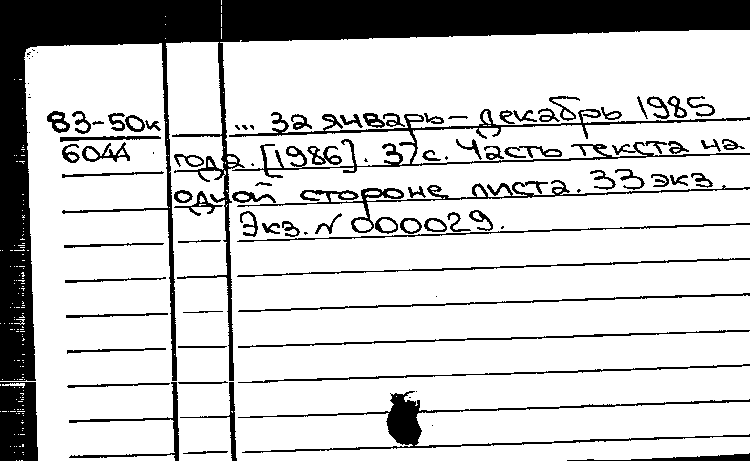 83-50к ... За январь-декабрь 1985
6044 года. [1986]. 37 с. Часть текста на
одной стороне листа. 33 экз.
Экз. N 000029.